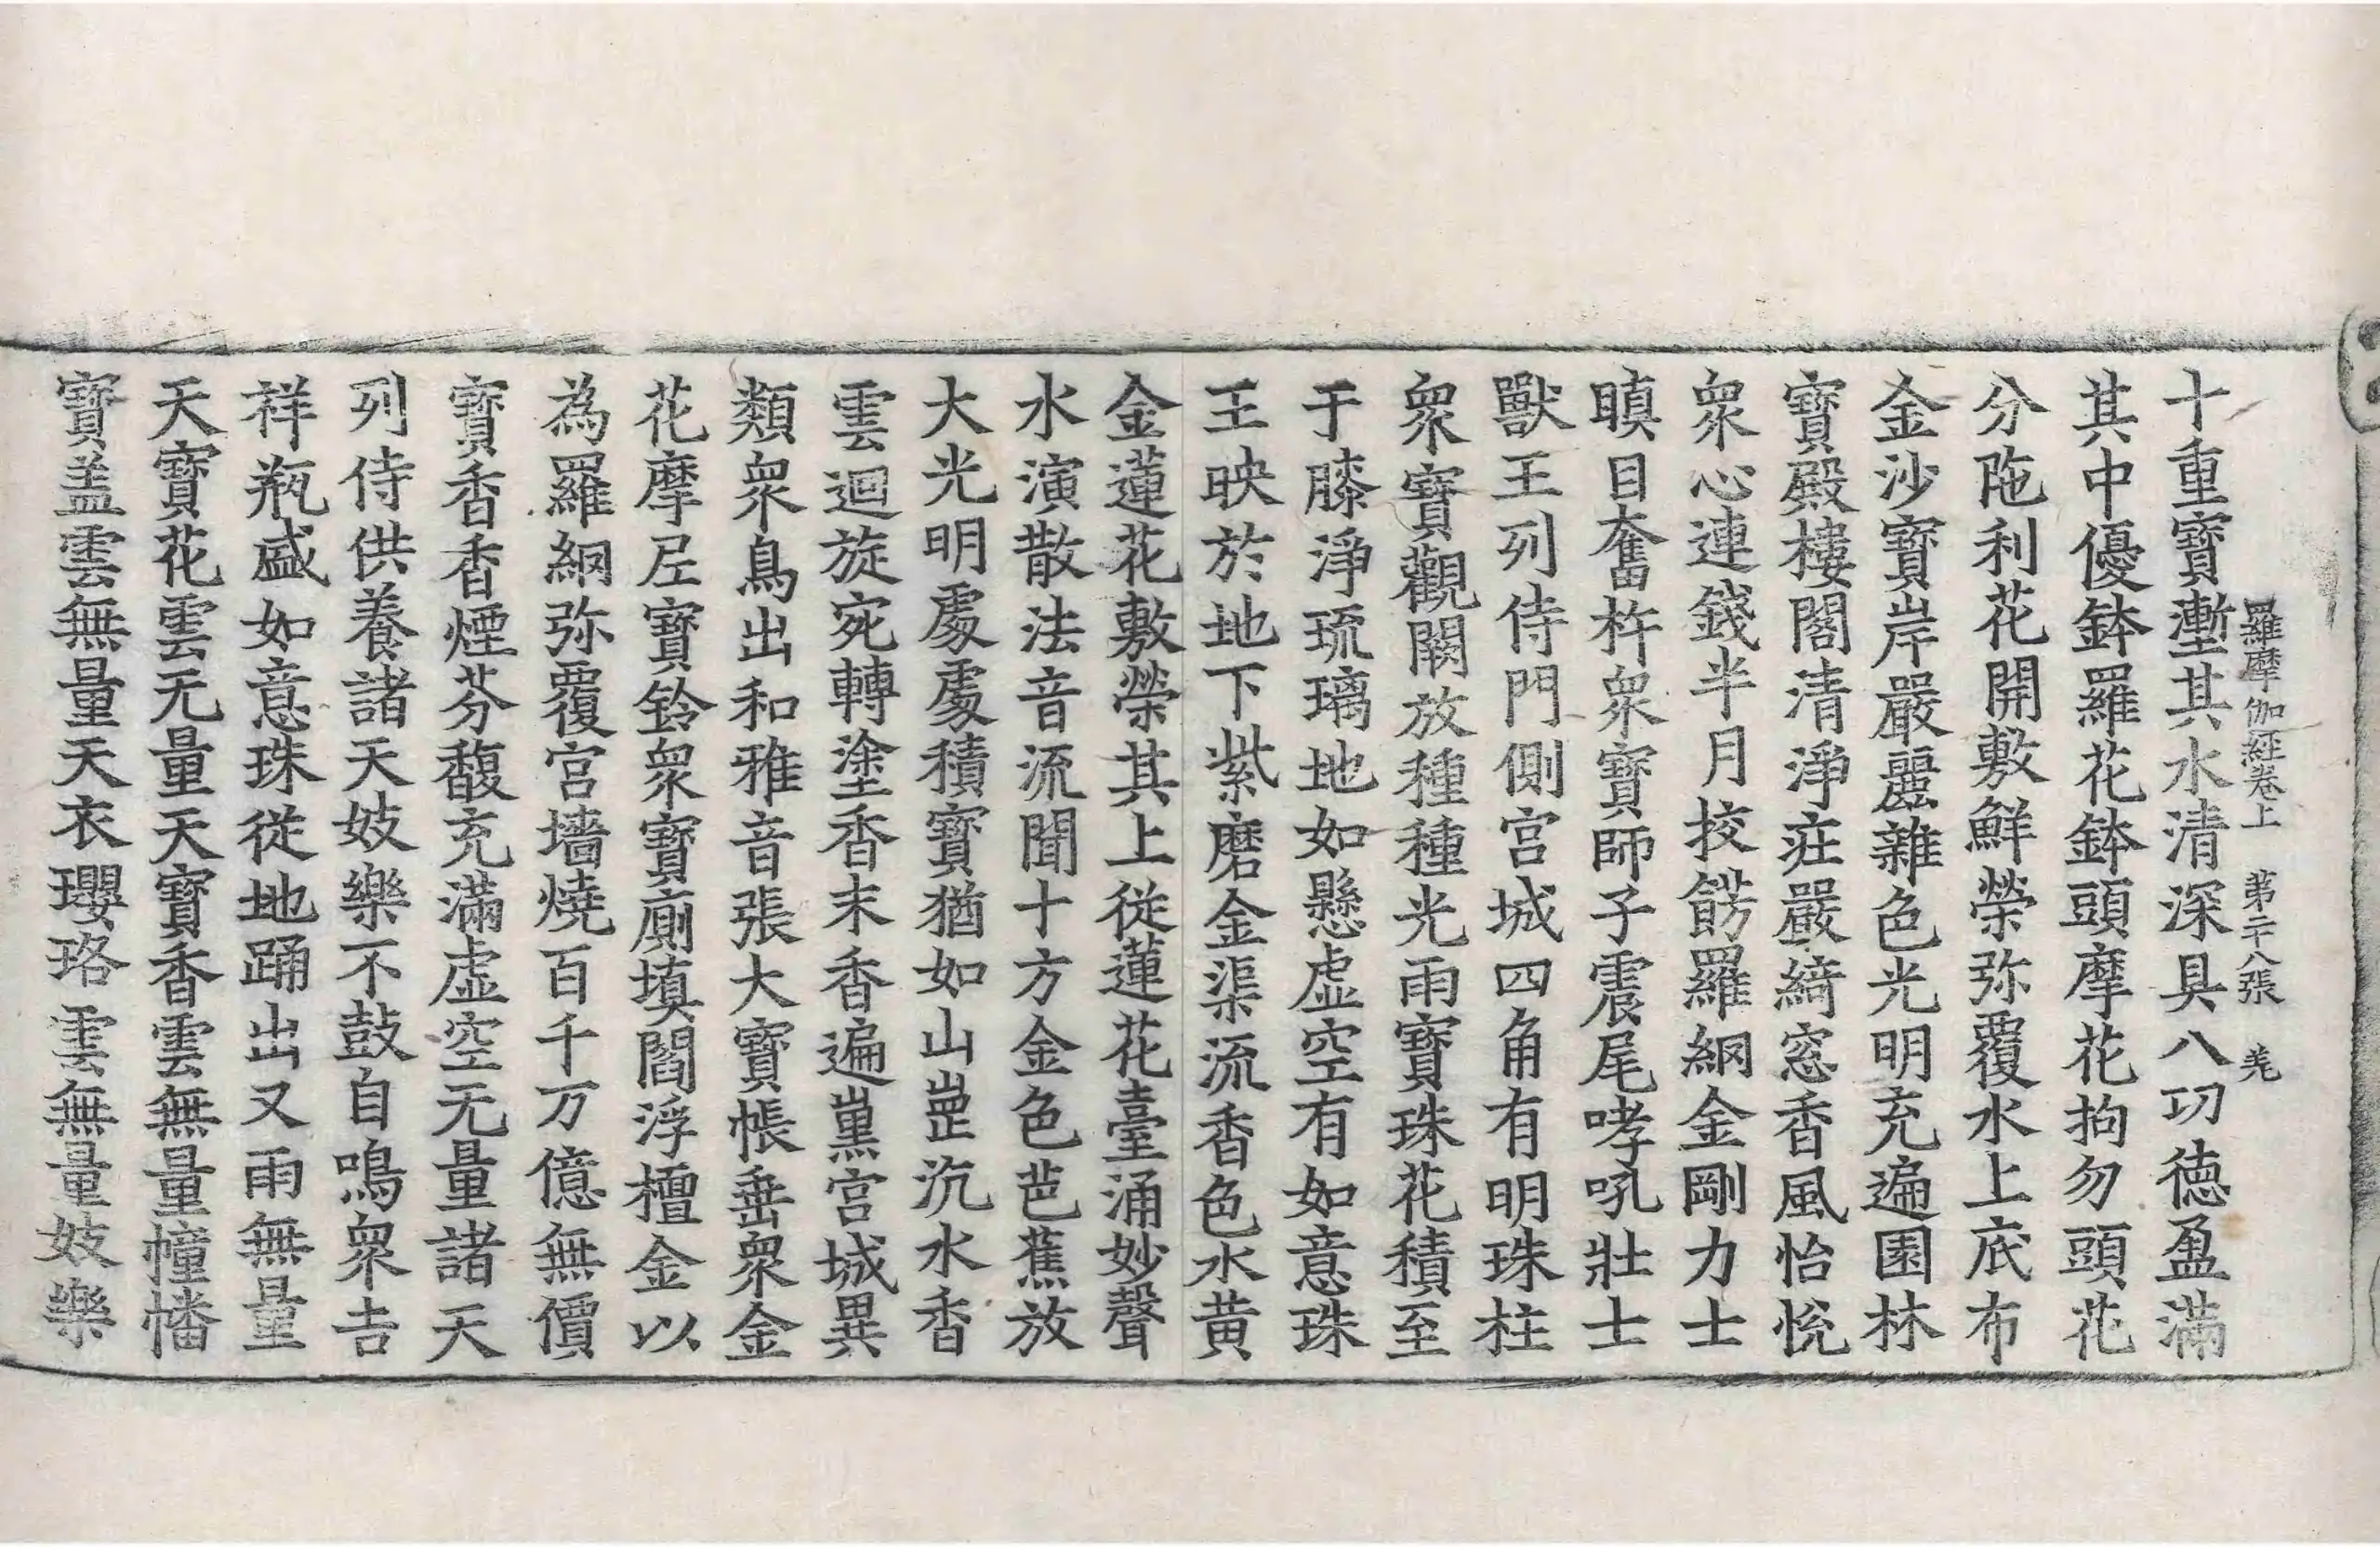 羅摩伽経卷上 第二十八張 羌
十重寳壍其水清深具八功徳盈滿
其中優鉢羅花鉢頭摩花拘勿頭花
分陁利花開敷鮮榮弥覆水上底布
金沙寳岸嚴麗雜色光明充遍園林
寳殿樓閣清淨庄嚴綺窓香風怡悅
衆心連錢半月挍餝羅網金剛力士
瞋目奮杵衆寳師子震尾哮吼壯士
獸王列侍門側宫城四角有明珠柱
衆寳觀闕放種種光雨寳珠花積至
于膝淨琉璃地如懸虚空有如意珠
王映於地下紫磨金渠流香色水黄
金蓮花敷榮其上従蓮花臺涌妙聲
水演散法音流聞十方金色芭蕉放
大光明處處積寳猶如山崑沉水香
雲迴旋宛轉塗香末香遍熏宫城異
類衆鳥出和雅音張大寳帳垂衆金
花摩尼寳鈴衆寳廁填閻浮檀金以
為羅網弥覆宫墻燒百千万億無價
寳香香煙芬馥充滿虚空无量諸天
列侍供養諸天妓樂不鼓自鳴衆吉
祥瓶盛如意珠従地踊出又雨無量
天寳花雲无量天寳香雲無量幢幡
寳盖雲無量天衣瓔珞雲無量妓樂